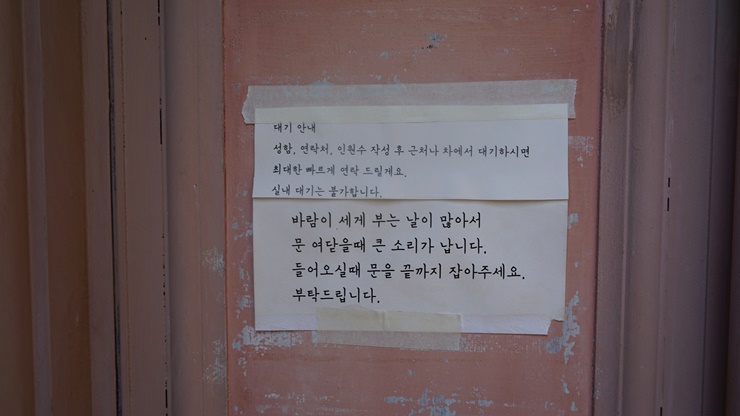 대기 안내
성함, 연락처, 인원수 작성 후 근처나 차에서 대기하시면
최대한 빠르게 연락 드릴게요.
실내 대기는 불가합니다.
바람이 세게 부는 날이 많아서
문 여닫을때 큰 소리가 납니다.
들어오실때 문을 끝까지 잡아주세요.
부탁드립니다.